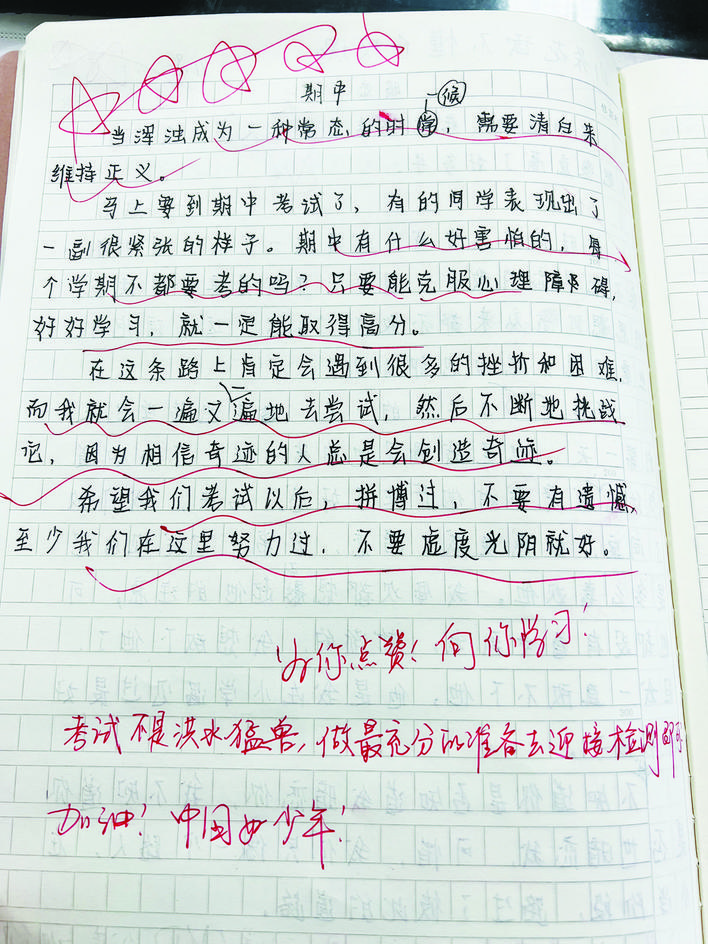 期中
候
当浑浊成为一种常态的时常，需要清白来
维持正义。
马上要到期中考试了，有的同学表现出了
一副很紧张的样子。期中有什么好害怕的，每
个学期不都要考的吗？只要能克服心理障碍，
好好学习，就一定能取得高分。
在这条路上肯定会遇到很多的挫折和困难，
而我就会一遍又遍地去尝试，然后不断地挑战
它，因为相信奇迹的人总是会创造奇迹。
希望我们考试以后，拼博过，不要有遗憾，
至少我们在这里努力过，不要虚度光阴就好。
为你点赞！向你学习！
考试不是洪水猛兽，做最充分的准备去迎接检测即可
加油！中国好少年！